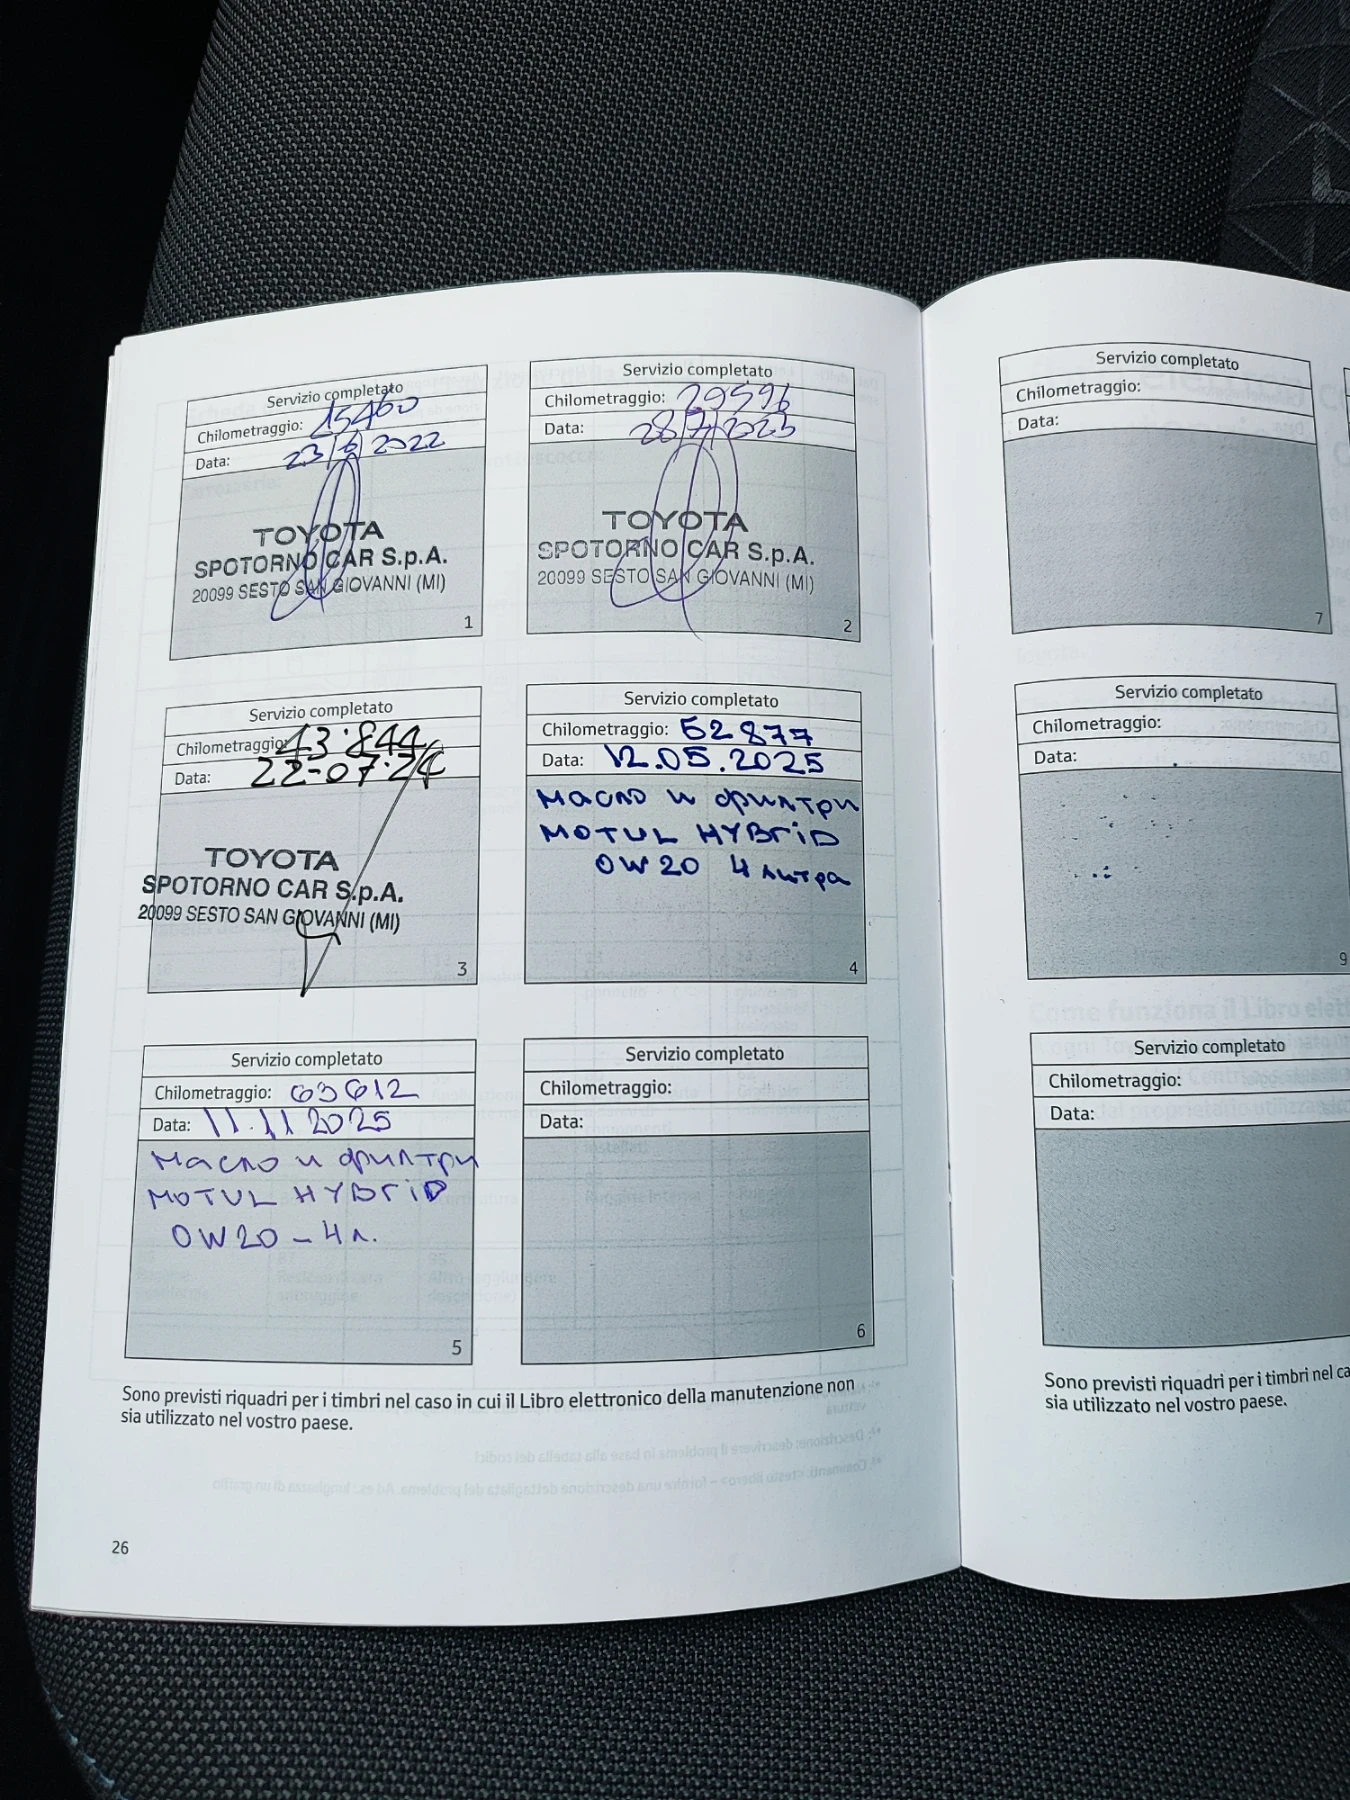 Servizio completato
Chilometraggio: 15460
Data: 23/6/2022
TOYOTA
SPOTORNO CAR S.p.A.
20099 SESTO SAN GIOVANNI (MI)
1
Servizio completato
Chilometraggio: 29596
Data: 28/7/2023
TOYOTA
SPOTORNO CAR S.p.A.
20099 SESTO SAN GIOVANNI (MI)
2
Servizio completato
Chilometraggio: 43.844
Data: 22-07-24
TOYOTA
SPOTORNO CAR S.p.A.
20099 SESTO SAN GIOVANNI (MI)
3
Servizio completato
Chilometraggio: 52877
Data: 12.05.2025
Масло и филтри
MOTUL HYBRiD
0W20 4 литра
4
Servizio completato
Chilometraggio: 63612
Data: 11.11.2025
Масло и филтри
MOTUL HYBRiD
0W20 – 4 л.
5
Servizio completato
Chilometraggio:
Data:
6
Sono previsti riquadri per i timbri nel caso in cui il Libro elettronico della manutenzione non
sia utilizzato nel vostro paese.
26
Servizio completato
Chilometraggio:
Data:
7
Servizio completato
Chilometraggio:
Data:
9
Servizio completato
Chilometraggio:
Data:
Sono previsti riquadri per i timbri nel
sia utilizzato nel vostro paese.